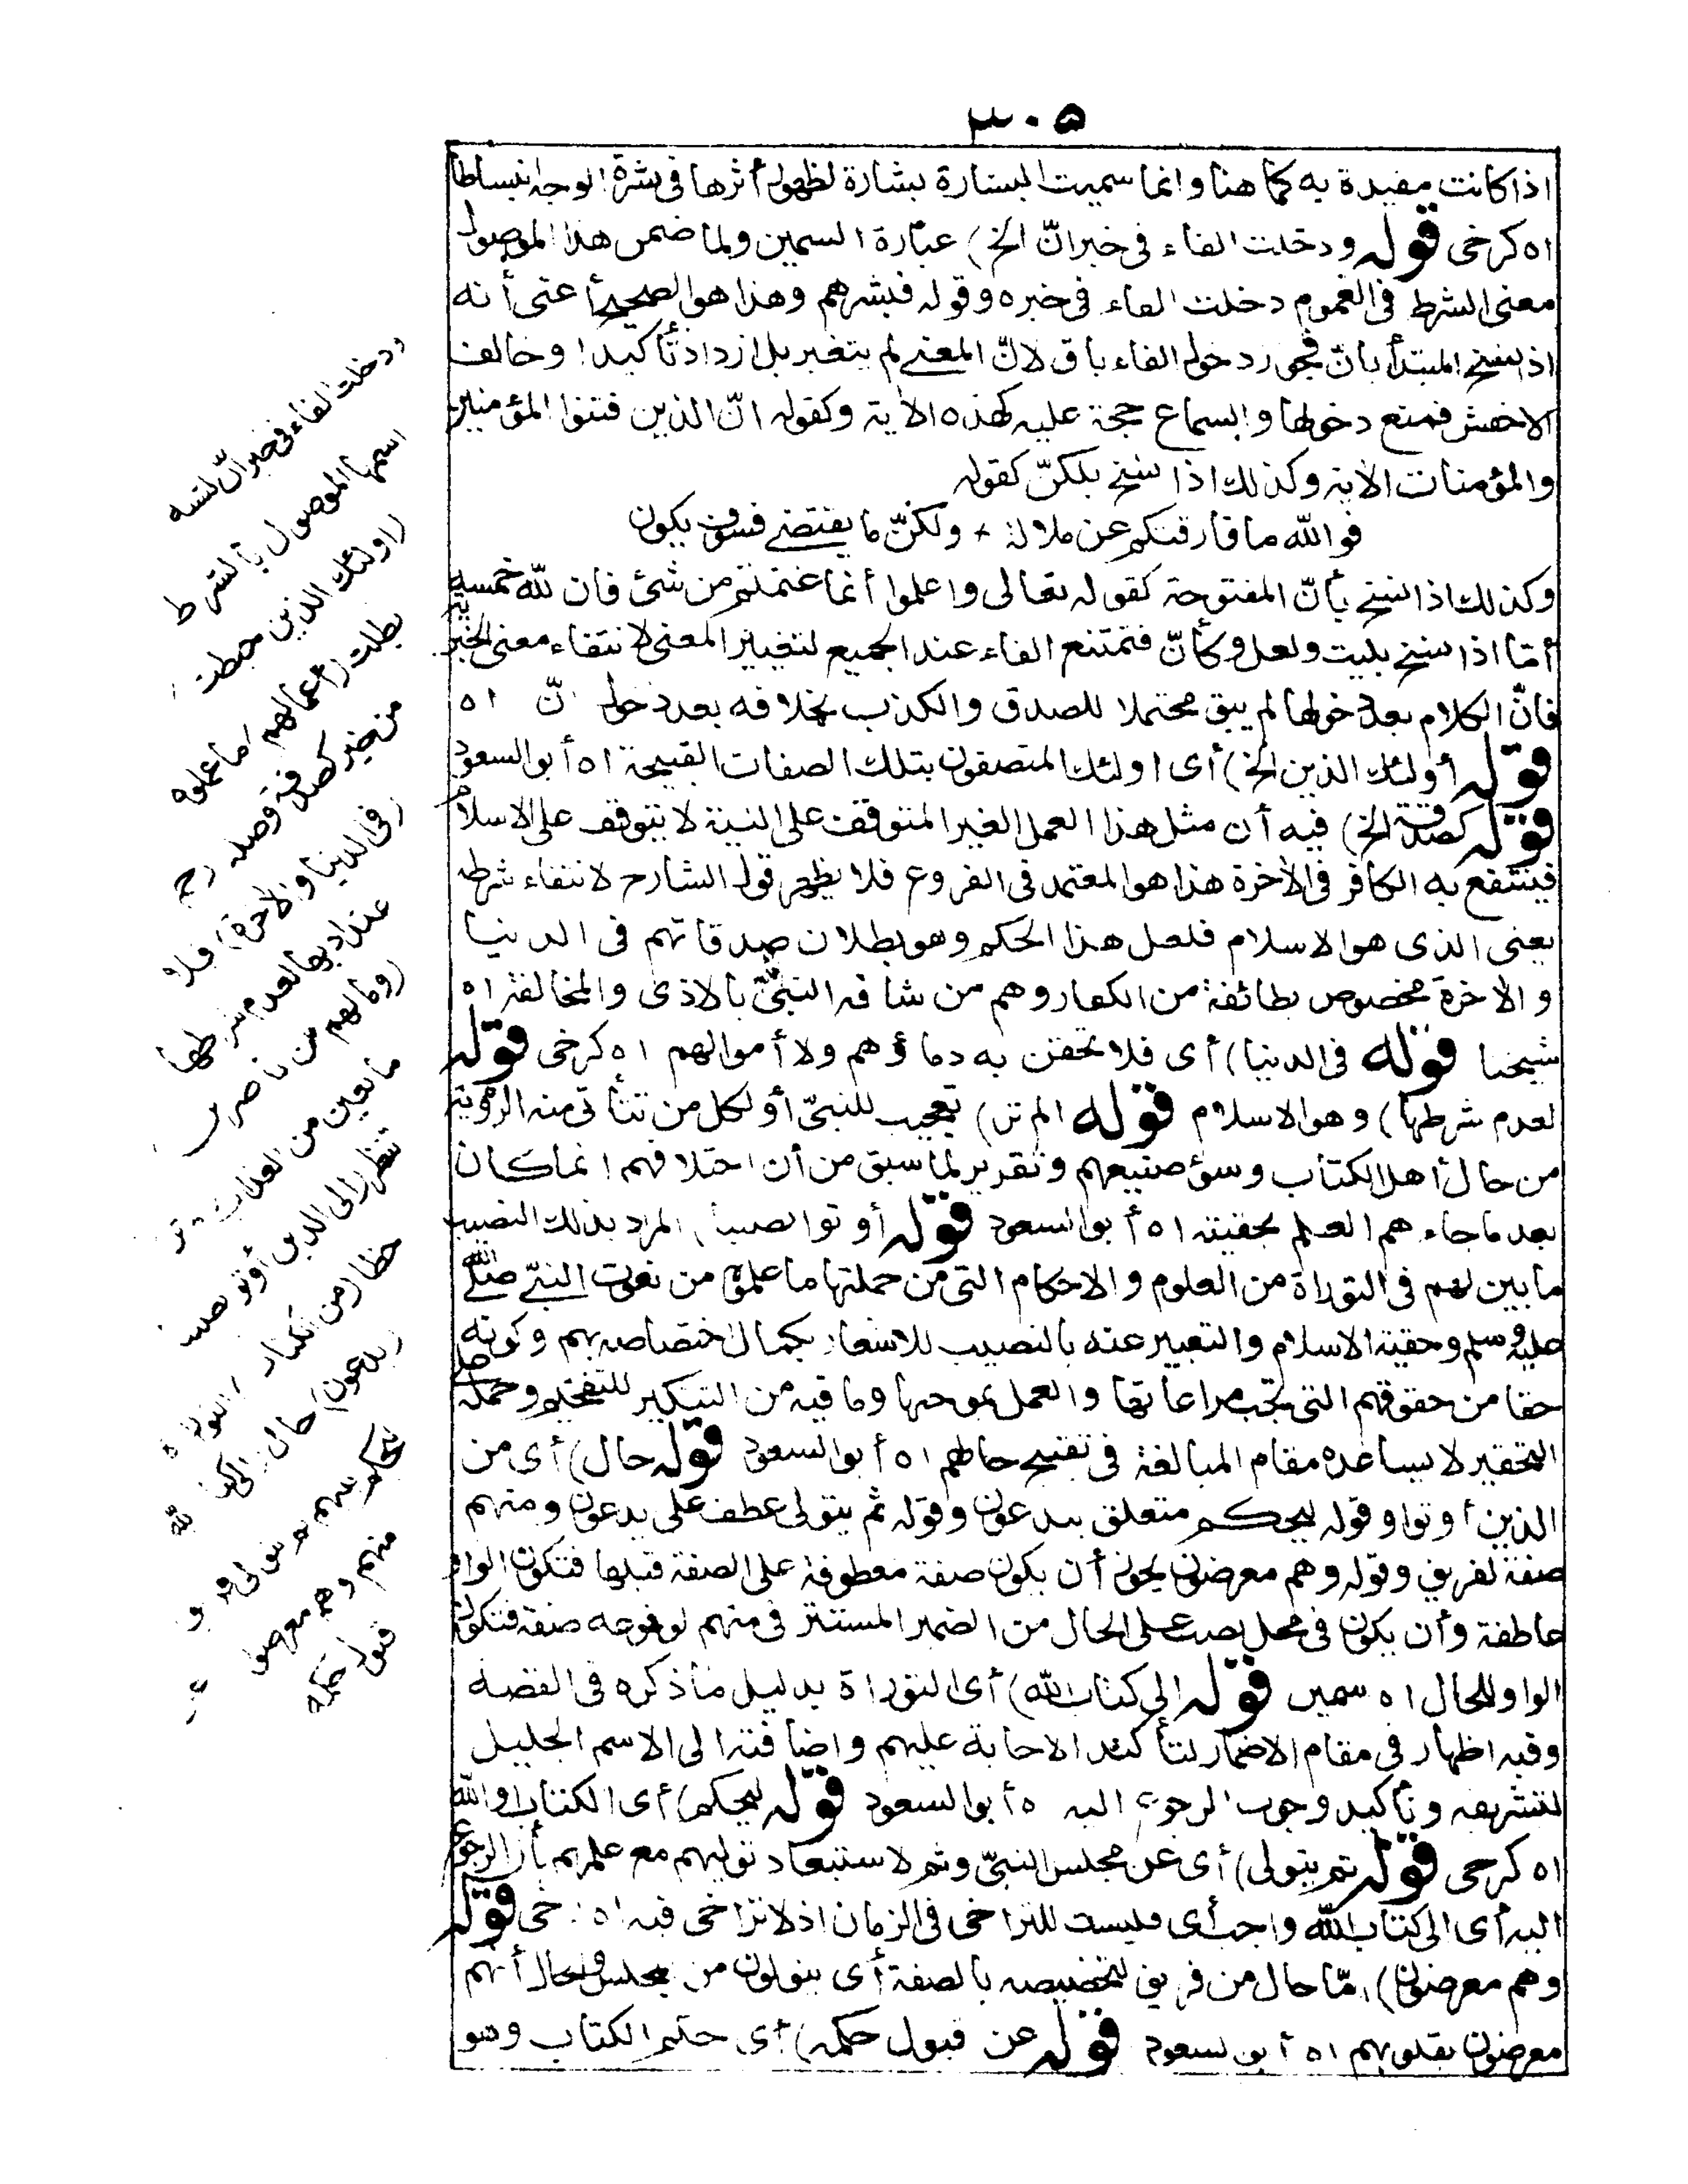 ٣٠٥
اذا كانت مقيدة به كما هنا وانما سميت البشارة بشارة لظهور أثرها فى بشرة الوجه انبساطا
اه كرخى قوله ودخلت الفاء فى خبر انّ الخ) عبارة السمين ولما ضمن هذا الموصول
معنى الشرط فى العموم دخلت الفاء فى خبره وقوله فبشرهم وهذا هو الصحيح أعنى أنه
اذا نسخ المبتدأ بانّ فجوز دخول الفاء باق لانّ المعنى لم يتغير بل ازداد تأكيدا وخالف
الاخفش فمنع دخولها والسماع حجة عليه كهذه الاٰية وكقوله انّ الذين فتنوا المؤمنين
والمؤمنات الاٰية وكذلك اذا نسخ بلكنّ كقوله
فوالله ما فارقتكم عن ملالة + ولكنّ ما يقتضى فسوف يكون
وكذلك اذا نسخ بأنّ المفتوحة كقوله تعالى واعلموا أنما غنمتم من شئ فان لله خمسه الاٰية
أمّا اذا نسخ بليت ولعل وكأنّ فتمتنع الفاء عند الجميع لتغيير المعنى لانتفاء معنى الخبر
فانّ الكلام بعد دخولها لم يبق محتملا للصدق والكذب بخلافه بعد دخول انّ اه
قوله أولئك الذين الخ) أى اولئك المتصفون بتلك الصفات القبيحة اه أبو السعود
قوله كصدقة الخ) فيه أن مثل هذا العمل الغير المتوقف على النية لا يتوقف على الاسلام
فينتفع به الكافر فى الاٰخرة هذا هو المعتمد فى الفروع فلا يظهر قول الشارح لانتفاء شرطه
يعنى الذى هو الاسلام فلعل هذا الحكم وهو بطلان صدقاتهم فى الدنيا
والاٰخرة مخصوص بطائفة من الكفار وهم من شافه النبىّ بالاذى والمخالفة اه
شيخنا قوله فى الدنيا) أى فلا تحقن به دماؤهم ولا أموالهم اه كرخى قوله
لعدم شرطها) وهو الاسلام قوله الم تر) تعجيب للنبىّ أو لكل من تتأتى منه الرؤية
من حال أهل الكتاب وسؤ صنيعهم وتقرير لما سبق من أن اختلافهم انما كان
بعد ما جاءهم العلم بحقيته اه أبو السعود قوله أوتوا نصيبا) المراد بذلك النصيب
ما بين لهم فى التوراة من العلوم والاحكام التى من جملتها ما علموه من نعوت النبىّ صلى الله
عليه وسلم وحقية الاسلام والتعبير عنه بالنصيب للاشعار بكمال اختصاصه بهم وكونه
حقا من حقوقهم التى تجب مراعاتها والعمل بموجبها وما فيه من التنكير للتفخيم وحمله على
التحقير لا يساعده مقام المبالغة فى تقبيح حالهم اه أبو السعود قوله حال) أى من
الذين أوتوا وقوله ليحكم متعلق بيدعون وقوله ثم يتولى عطف على يدعون ومنهم
صفة لفريق وقوله وهم معرضون يجوز أن يكون صفة معطوفة على الصفة قبلها فتكون الواو
عاطفة وأن يكون فى محل نصب على الحال من الضمير المستتر فى منهم لوقوعه صفة فتكون
الواو للحال اه سمين قوله الى كتاب الله) أى التوراة بدليل ما ذكره فى القصة
وفيه اظهار فى مقام الاضمار لتأكيد الاجابة عليهم واضافته الى الاسم الجليل
لتشريفه وتأكيد وجوب الرجوع اليه اه أبو السعود قوله ليحكم) أى الكتاب او الله
اه كرخى قوله ثم يتولى) أى عن مجلس النبىّ وثم لاستبعاد توليهم مع علمهم بأن الرجوع
اليه أى الى كتاب الله واجب أى فليست للتراخى فى الزمان اذ لا تراخى فيه اه كرخى قوله
وهم معرضون) امّا حال من فريق لتخصيصه بالصفة أى يتولون من مجلس والحال أنهم
معرضون بقلوبهم اه أبو السعود قوله عن قبول حكمه) أى حكم الكتاب وهو
ودخلت الفاء فى خبر انّ لشبه
اسمها الموصول بالشرط
(اولئك الذين حبطت)
بطلت (أعمالهم) ما عملوه
من خير كصدقة وصلة رحم
(فى الدنيا والاٰخرة) فلا
اعتداد بها لعدم شرطها
(وما لهم من ناصرين)
مانعين من العذاب (ألم تر)
تنظر (الى الذين أوتوا نصيبا)
حظا (من الكتاب) التوراة
(يدعون) حال (الى كتاب الله
ليحكم بينهم ثم يتولى فريق
منهم وهم معرضون) عن
قبول حكمه